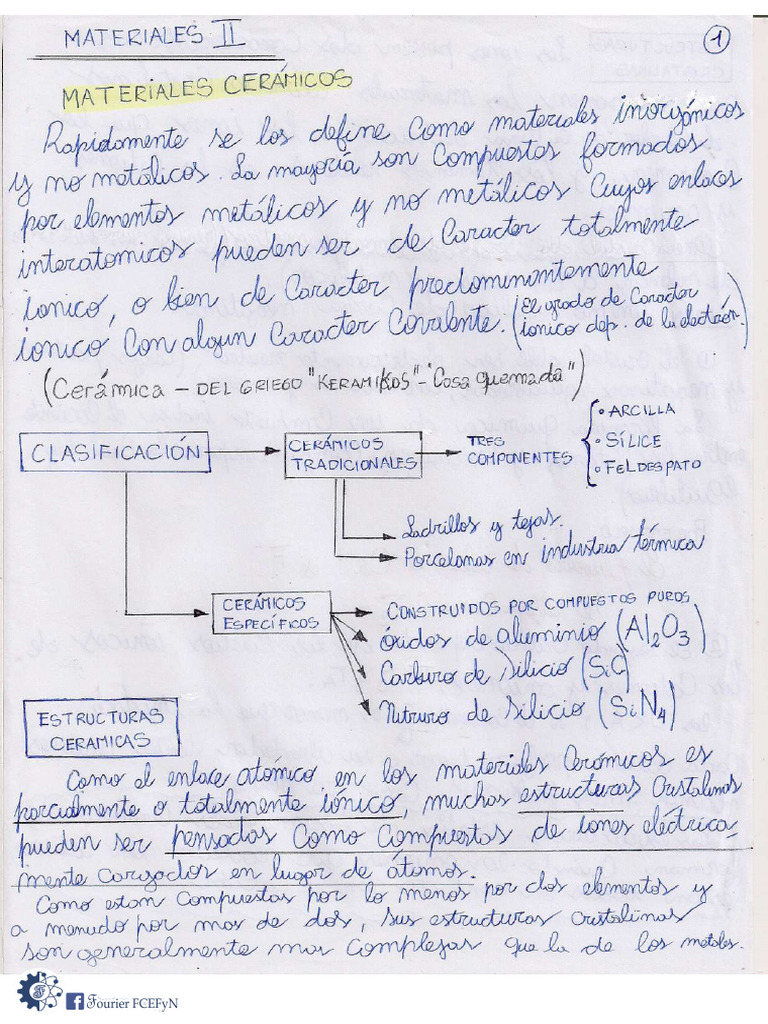 MATERIALES II
1
MATERIALES CERÁMICOS
Rapidamente se los define como materiales inorgánicos
y no metálicos. La mayoría son Compuestos formados
por elementos metálicos y no metálicos Cuyos enlaces
interatomicos pueden ser de Caracter totalmente
ionico, o bien de Caracter predominantemente
ionico Con algun Caracter Covalente. (El grado de Caracter
ionico dep. de la electrón.)
(Cerámica – DEL GRIEGO "KERAMIKOS" – "Cosa quemada")
CLASIFICACIÓN
CERÁMICOS
TRADICIONALES
TRES
COMPONENTES
• ARCILLA
• SÍLICE
• FELDESPATO
Ladrillos y tejas.
Porcelanas en industria térmica
CERÁMICOS
ESPECÍFICOS
CONSTRUIDOS POR COMPUESTOS PUROS
óxidos de aluminio (Al2O3)
Carburo de Silicio (SiC)
Nitruro de Silicio (SiN4)
ESTRUCTURAS
CERAMICAS
Como el enlace atómico, en los materiales Cerámicos es
parcialmente o totalmente iónico, muchas estructuras Cristalinas
pueden ser pensadas Como Compuestas de iones eléctrica-
mente Cargados en lugar de átomos.
Como estan Compuestas por lo menos por dos elementos y
a menudo por mas de dos, sus estructuras Cristalinas
son generalmente mas Complejas que la de los metales.
Fourier FCEFyN